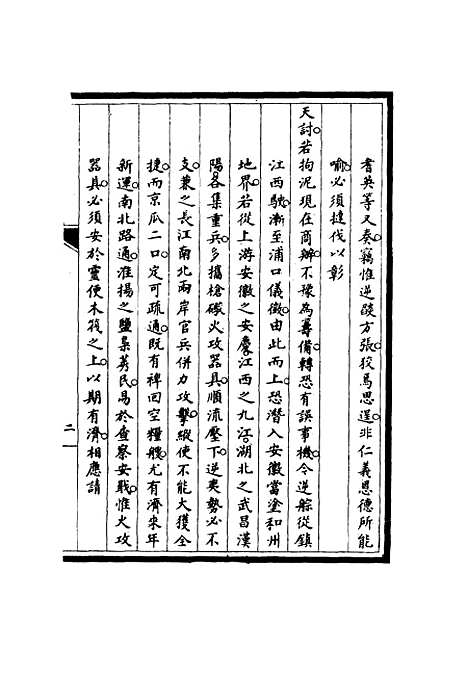 耆英等又奏竊惟逆燄方張狡焉思逞非仁義恩德所能
喻必須撻伐以彰
天討若拘泥現在商辦不豫為籌備轉恐有誤事機今逆艅從鎮
江西駛漸至浦口儀徵由此而上恐潛入安徽當塗和州
地界若從上游安徽之安慶江西之九江湖北之武昌漢
陽各集重兵多攜槍礮火攻器具順流壓下逆夷勢必不
支兼之長江南北兩岸官兵併力攻擊縱使不能大獲全
捷而京瓜二口定可疏通既有裨回空糧艘尤有濟來年
新運南北路通淮揚之鹽梟莠民易於查察安戢惟火攻
器具必須安於靈便木筏之上以期有濟相應請
二